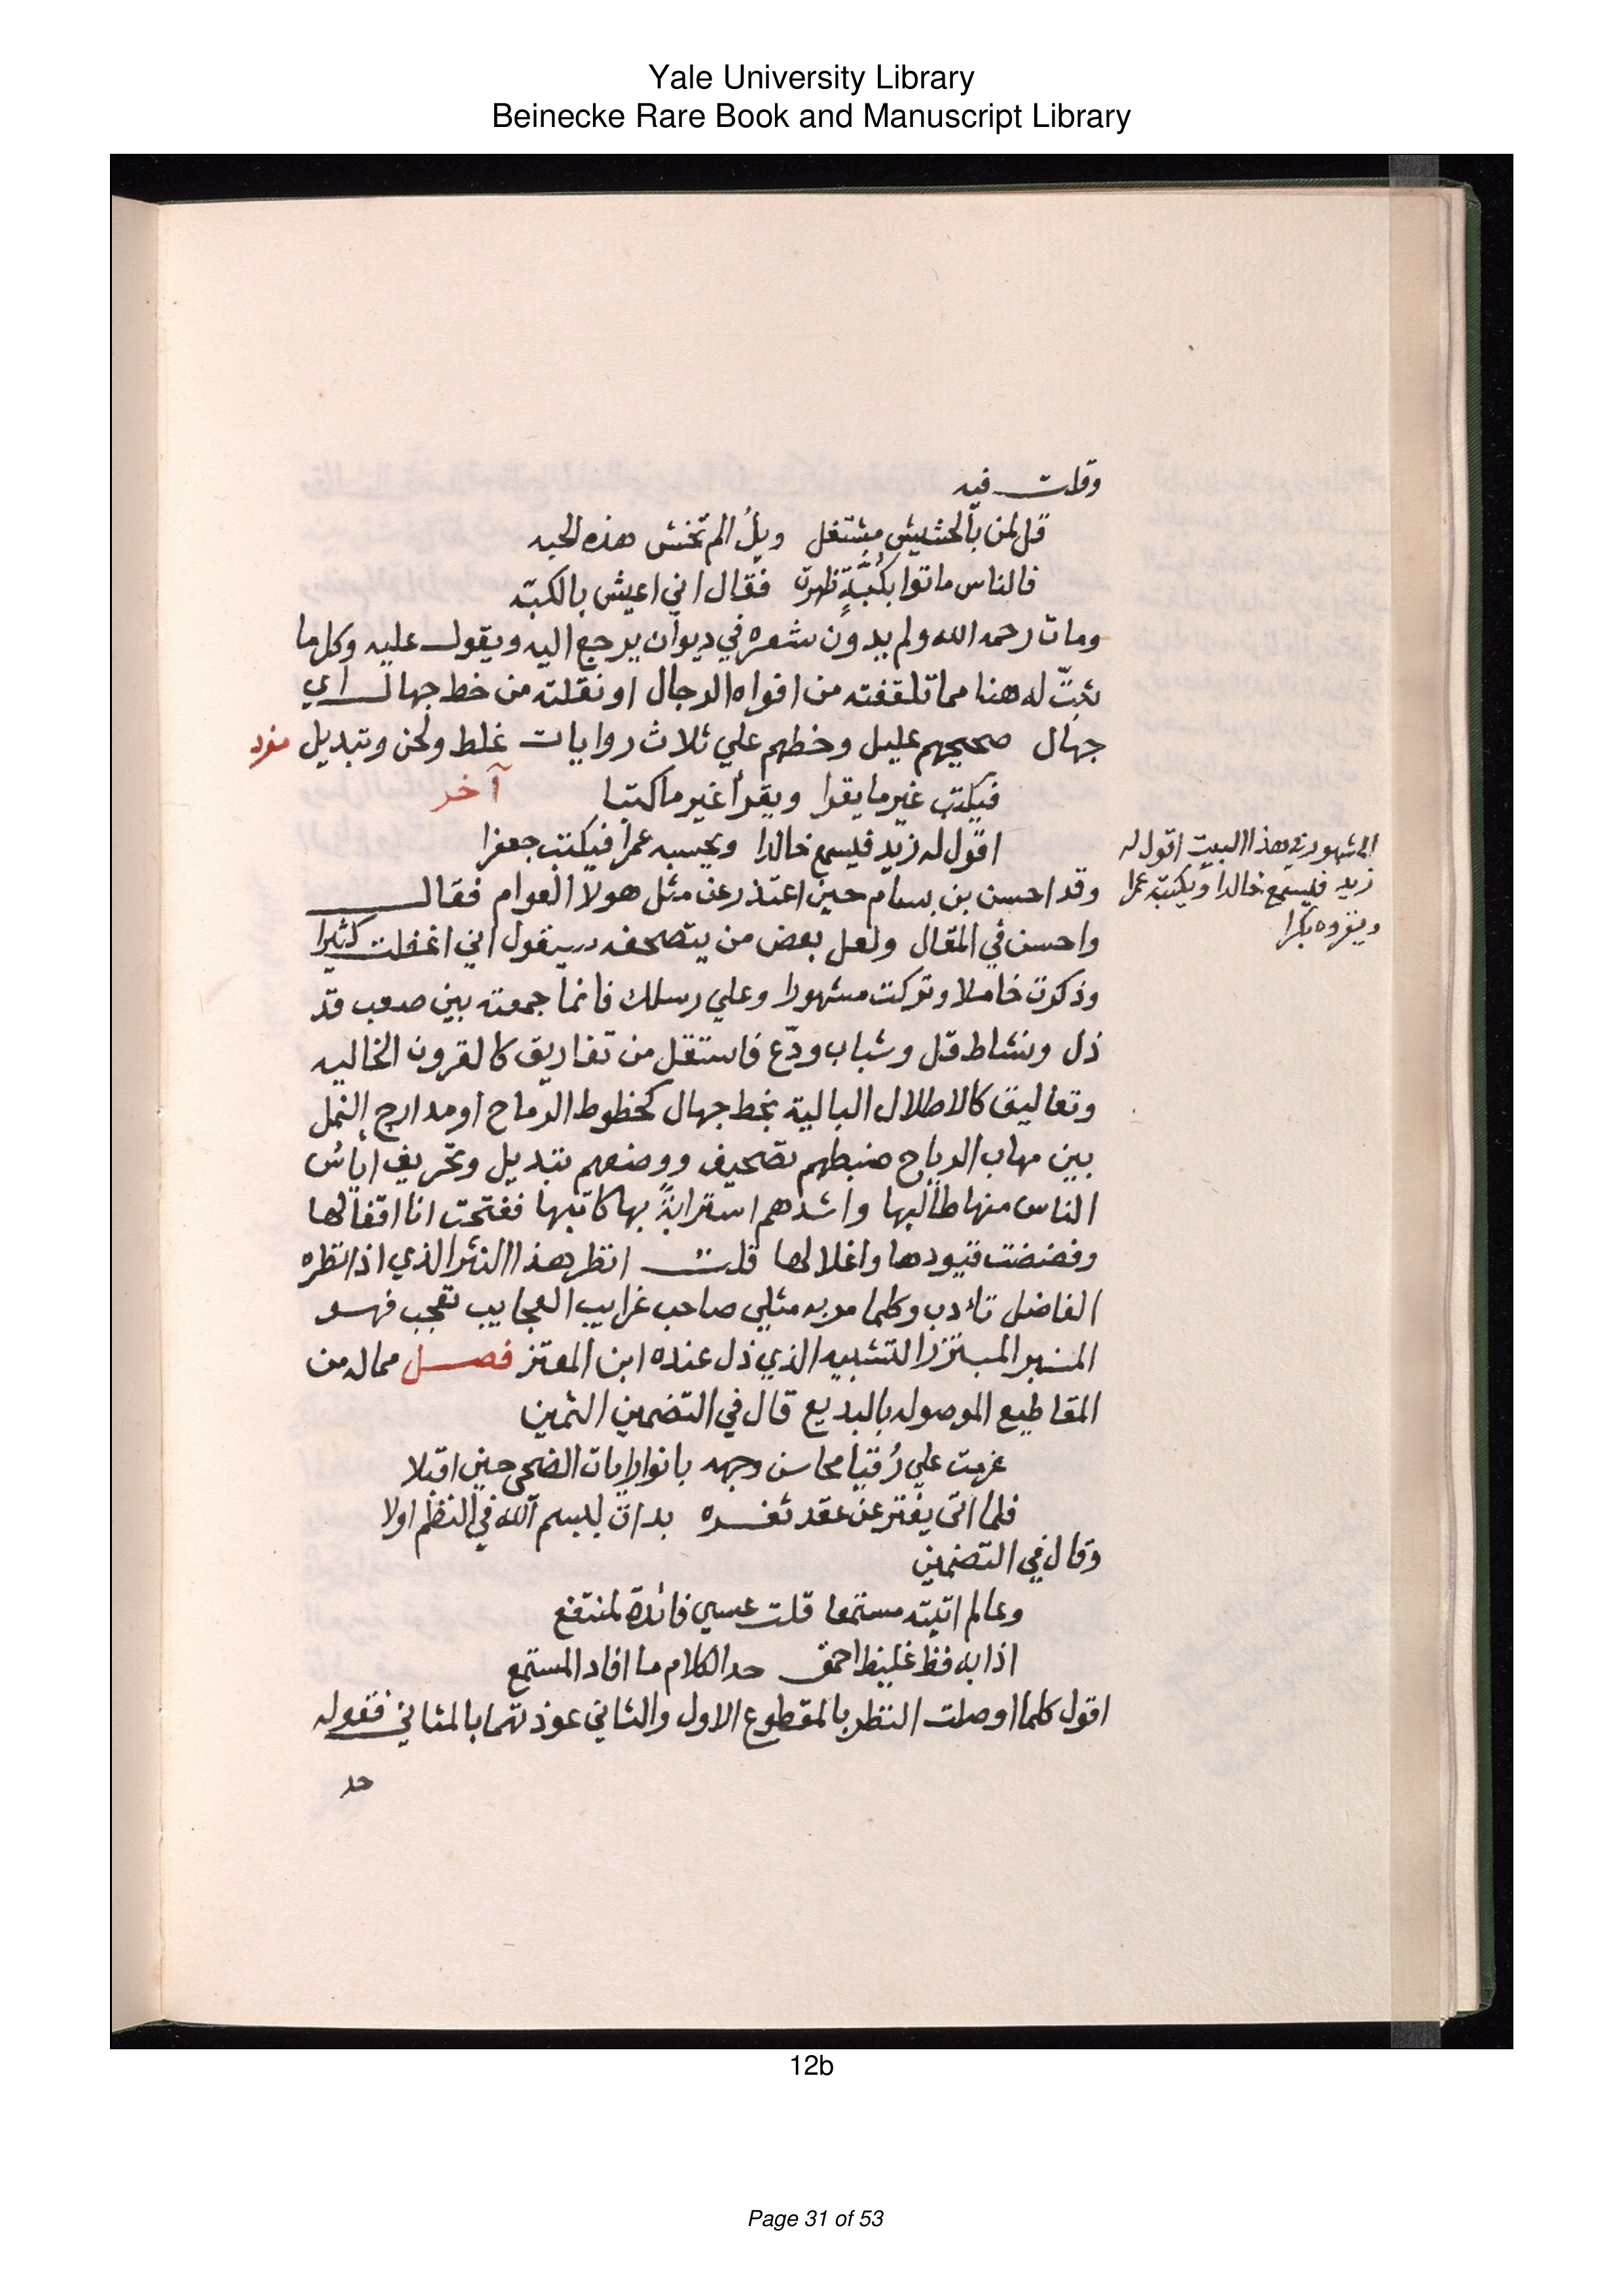 Yale University Library
Beinecke Rare Book and Manuscript Library
وقلت فيه
قل لمن بالحشيش مشتغل ويلُ الم تخش هذه الحبه
فالناس ماتوا بكُبَّةٍ ظهرت فقال اني اعيش بالكبّه
ومات رحمه الله ولم يدون شعره في ديوان يرجع اليه ويقول عليه وكل ما
يثبتّ له هنا مما تلقفته من افواه الرجال او نقلته من خط جهال اي
جهال صحيحهم عليل وخطهم علي ثلاث روايات غلط ولحن وتبديل مفرد
فيكتب غير ما يقرا ويقرأ غير ما كتبا آخر
اقول له زيد فيسمع خالدا ويحسبه عمرا فيكتب جعفرا
وقد احسن بن بسام حين اعتذر عن مثل هولا العوام فقال
واحسن في المقال ولعل بعض من يتصحفه سيقول اني اغفلت كثيرا
وذكرت خاملا وتركت مشهورا وعلي رسلك فانما جمعته بين صعب قد
ذل ونشاط قل وشباب ودّع فاستقل من تفاريق كالقرون الخاليه
وتعاليق كالاطلال البالية بخط جهال كخطوط الرماح او مدارج النمل
بين مهاب الرياح ضبطهم تصحيف ووضعهم تبديل وتحريف ايأسُ
الناس منها طالبها واشدهم استرابةً بها كاتبها ففتحت انا اقفالها
وفضضت قيودها واغلالها قلت انظر هذا النثر الذي اذا نظره
الفاضل تأدب وكلما مر به مثلي صاحب غرايب العجايب تعجب فهو
المنبر المبتزز التشبيه الذي ذل عنده ابن المعتز فصل مما له من
المقاطيع الموصوله بالبديع قال في التضمين الثمين
عزمت علي رُقيا محاسن وجهه بانوار ايات الضحى حين اقبلا
فلما اتى يفتر عن عقد ثغره بدات ببسم الله في النظم اولا
وقال في التضمين
وعالم اتيته مستمعا قلت عسي فائدة لمنتفع
اذا به فظ غليظ احمق حد الكلام ما افاد المستمع
اقول كلما اوصلت النظر بالمقطوع الاول والثاني عوذتهما بالمثاني فقوله
حد
المشهور في هذا البيت اقول له
زيد فيسمع خالدا ويكتبه عمرا
ويقروه بكرا
12b
Page 31 of 53